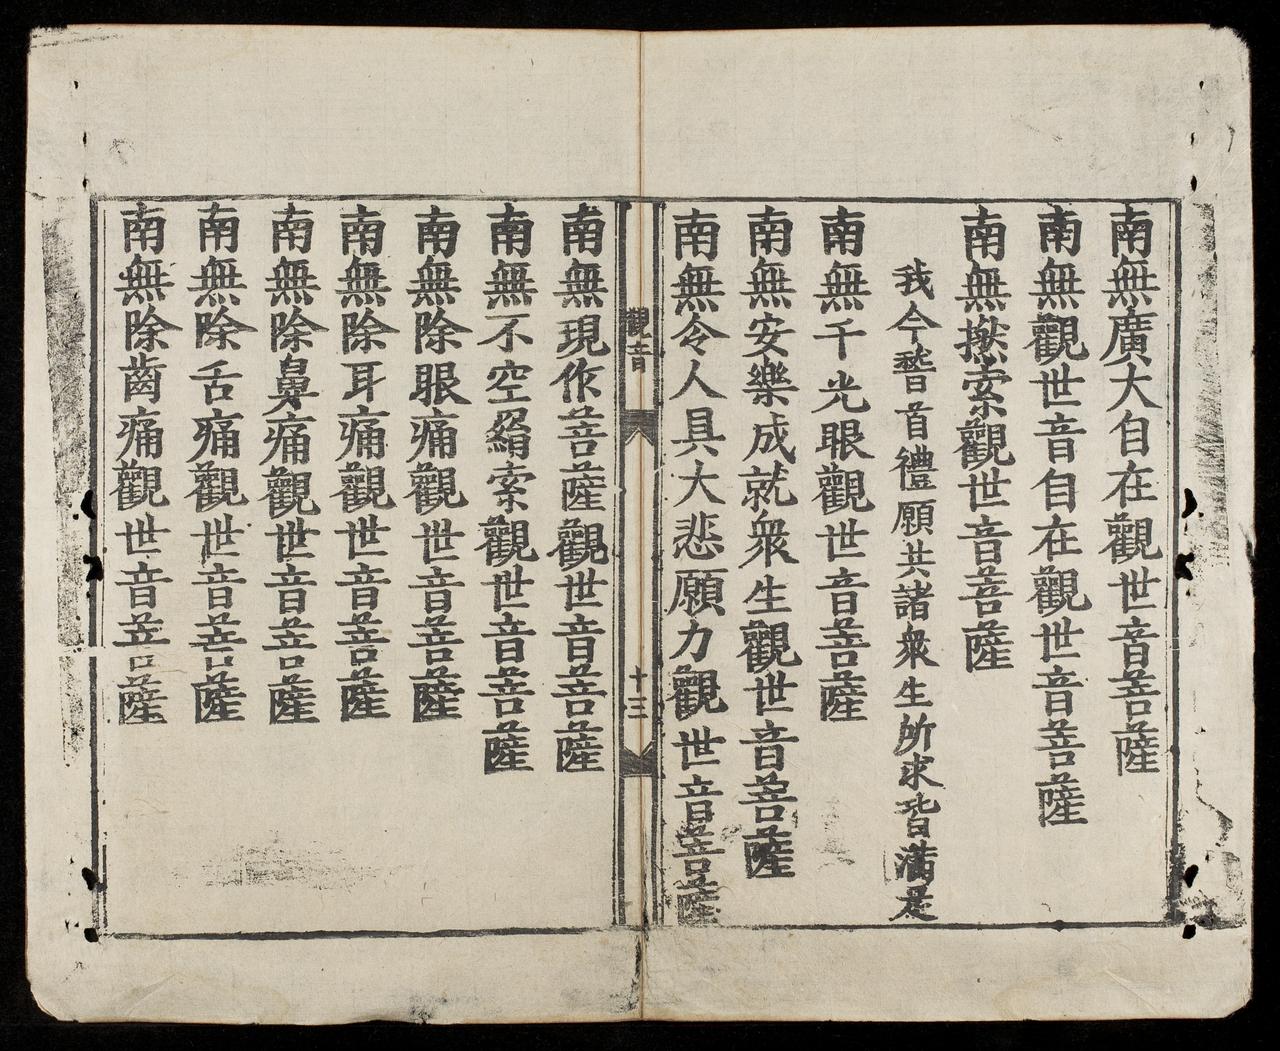 南無廣大自在觀世音菩薩
南無觀世音自在觀世音菩薩
南無撚索觀世音菩薩
我今䭫首禮願共諸衆生所求皆滿足
南無千光眼觀世音菩薩
南無安樂成就衆生觀世音菩薩
南無令人具大悲願力觀世音菩薩
觀音
十三
南無現作菩薩觀世音菩薩
南無不空羂索觀世音菩薩
南無除眼痛觀世音菩薩
南無除耳痛觀世音菩薩
南無除鼻痛觀世音菩薩
南無除舌痛觀世音菩薩
南無除齒痛觀世音菩薩